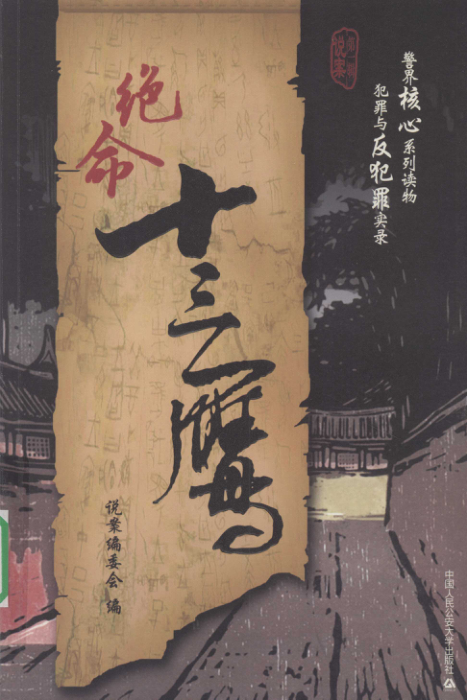 绝命
十三鹰
说案编委会 编
说案
警界核心系列读物
犯罪与反犯罪实录
中国人民公安大学出版社